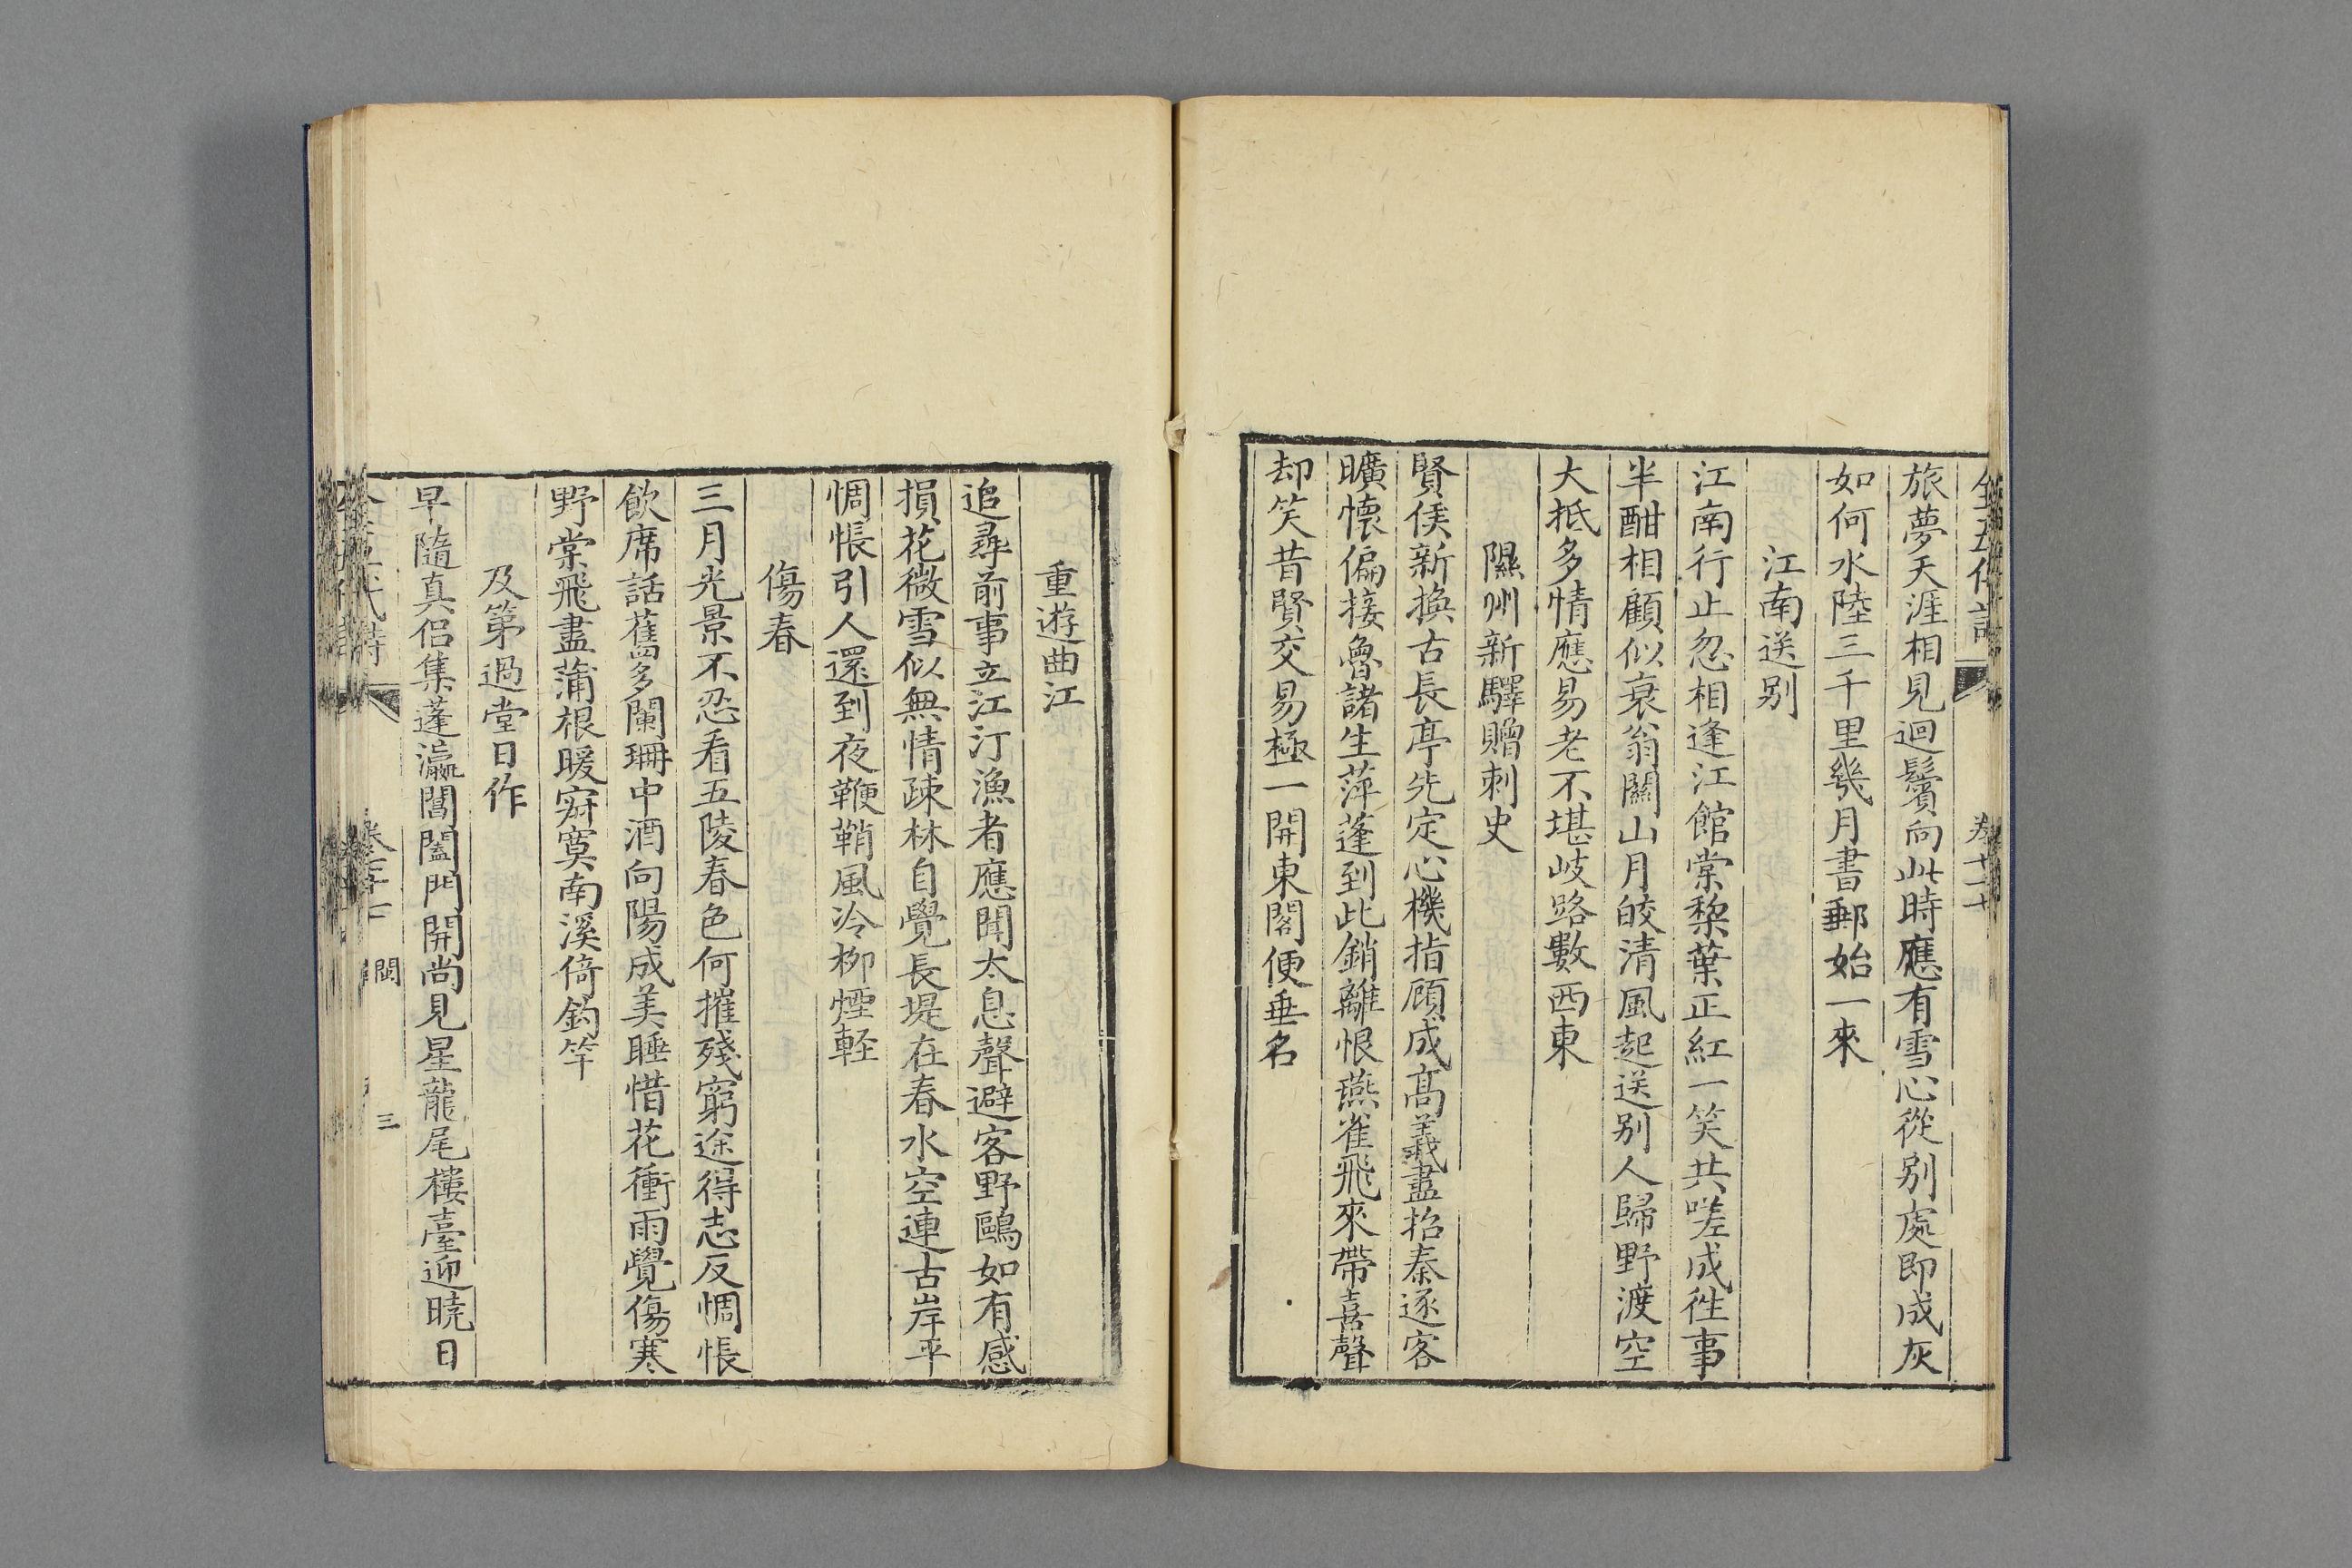 旅夢天涯相見迴鬢向此時應有雪心從别處即成灰
如何水陸三千里幾月書郵始一來
江南送别
江南行止忽相逢江館棠梨葉正紅一笑共嗟成徃事
半酣相顧似衰翁關山月皎清風起送别人歸野渡空
大抵多情應易老不堪岐路數西東
隰州新驛贈刺史
賢侯新換古長亭先定心機指顧成高義盡招秦逐客
曠懷偏接魯諸生萍蓬到此銷離恨燕雀飛來帶喜聲
却笑昔賢交易極一開東閣便垂名
重遊曲江
追尋前事立江汀漁者應聞太息聲避客野鷗如有感
損花微雪似無情疎林自覺長堤在春水空連古岸平
惆悵引人還到夜鞭鞘風冷栁煙輕
傷春
三月光景不忍看五陵春色何摧殘窮途得志反惆悵
飲席話舊多闌珊中酒向陽成美睡惜花衝雨覺傷寒
野棠飛盡蒲根暖寂寞南溪倚釣竿
及第過堂日作
早隨真侣集蓬瀛閶闔門開尚見星龍尾樓臺迎曉日
閩
三